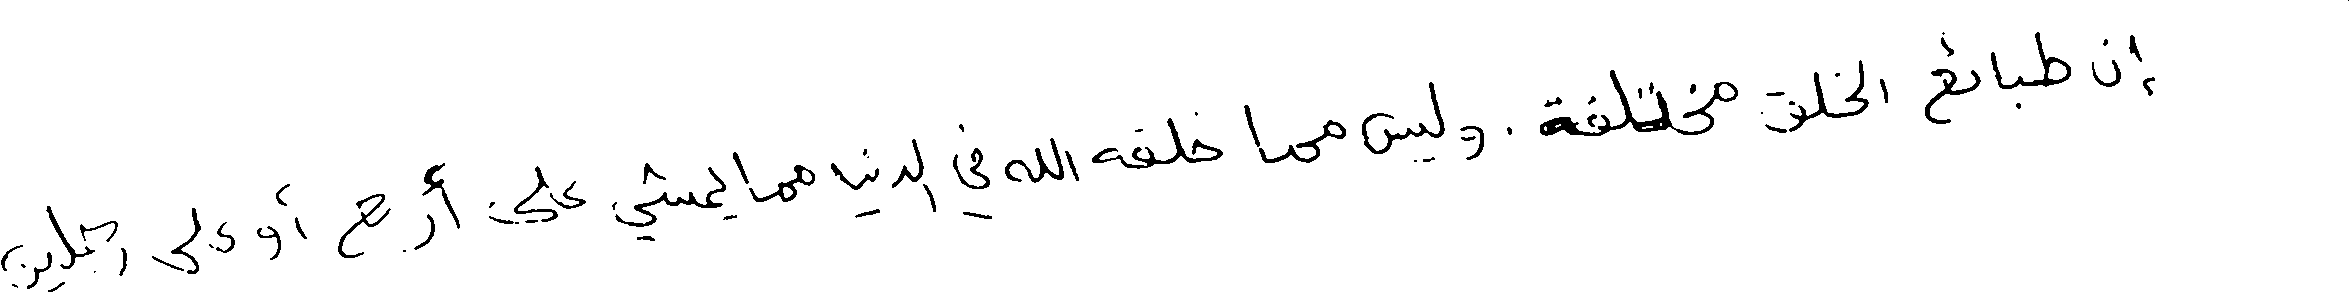 إن طبائع الخلق مختلفة . وليس مما خلقه الله في الدنيا مما يمشي على أربع أو على رجلين